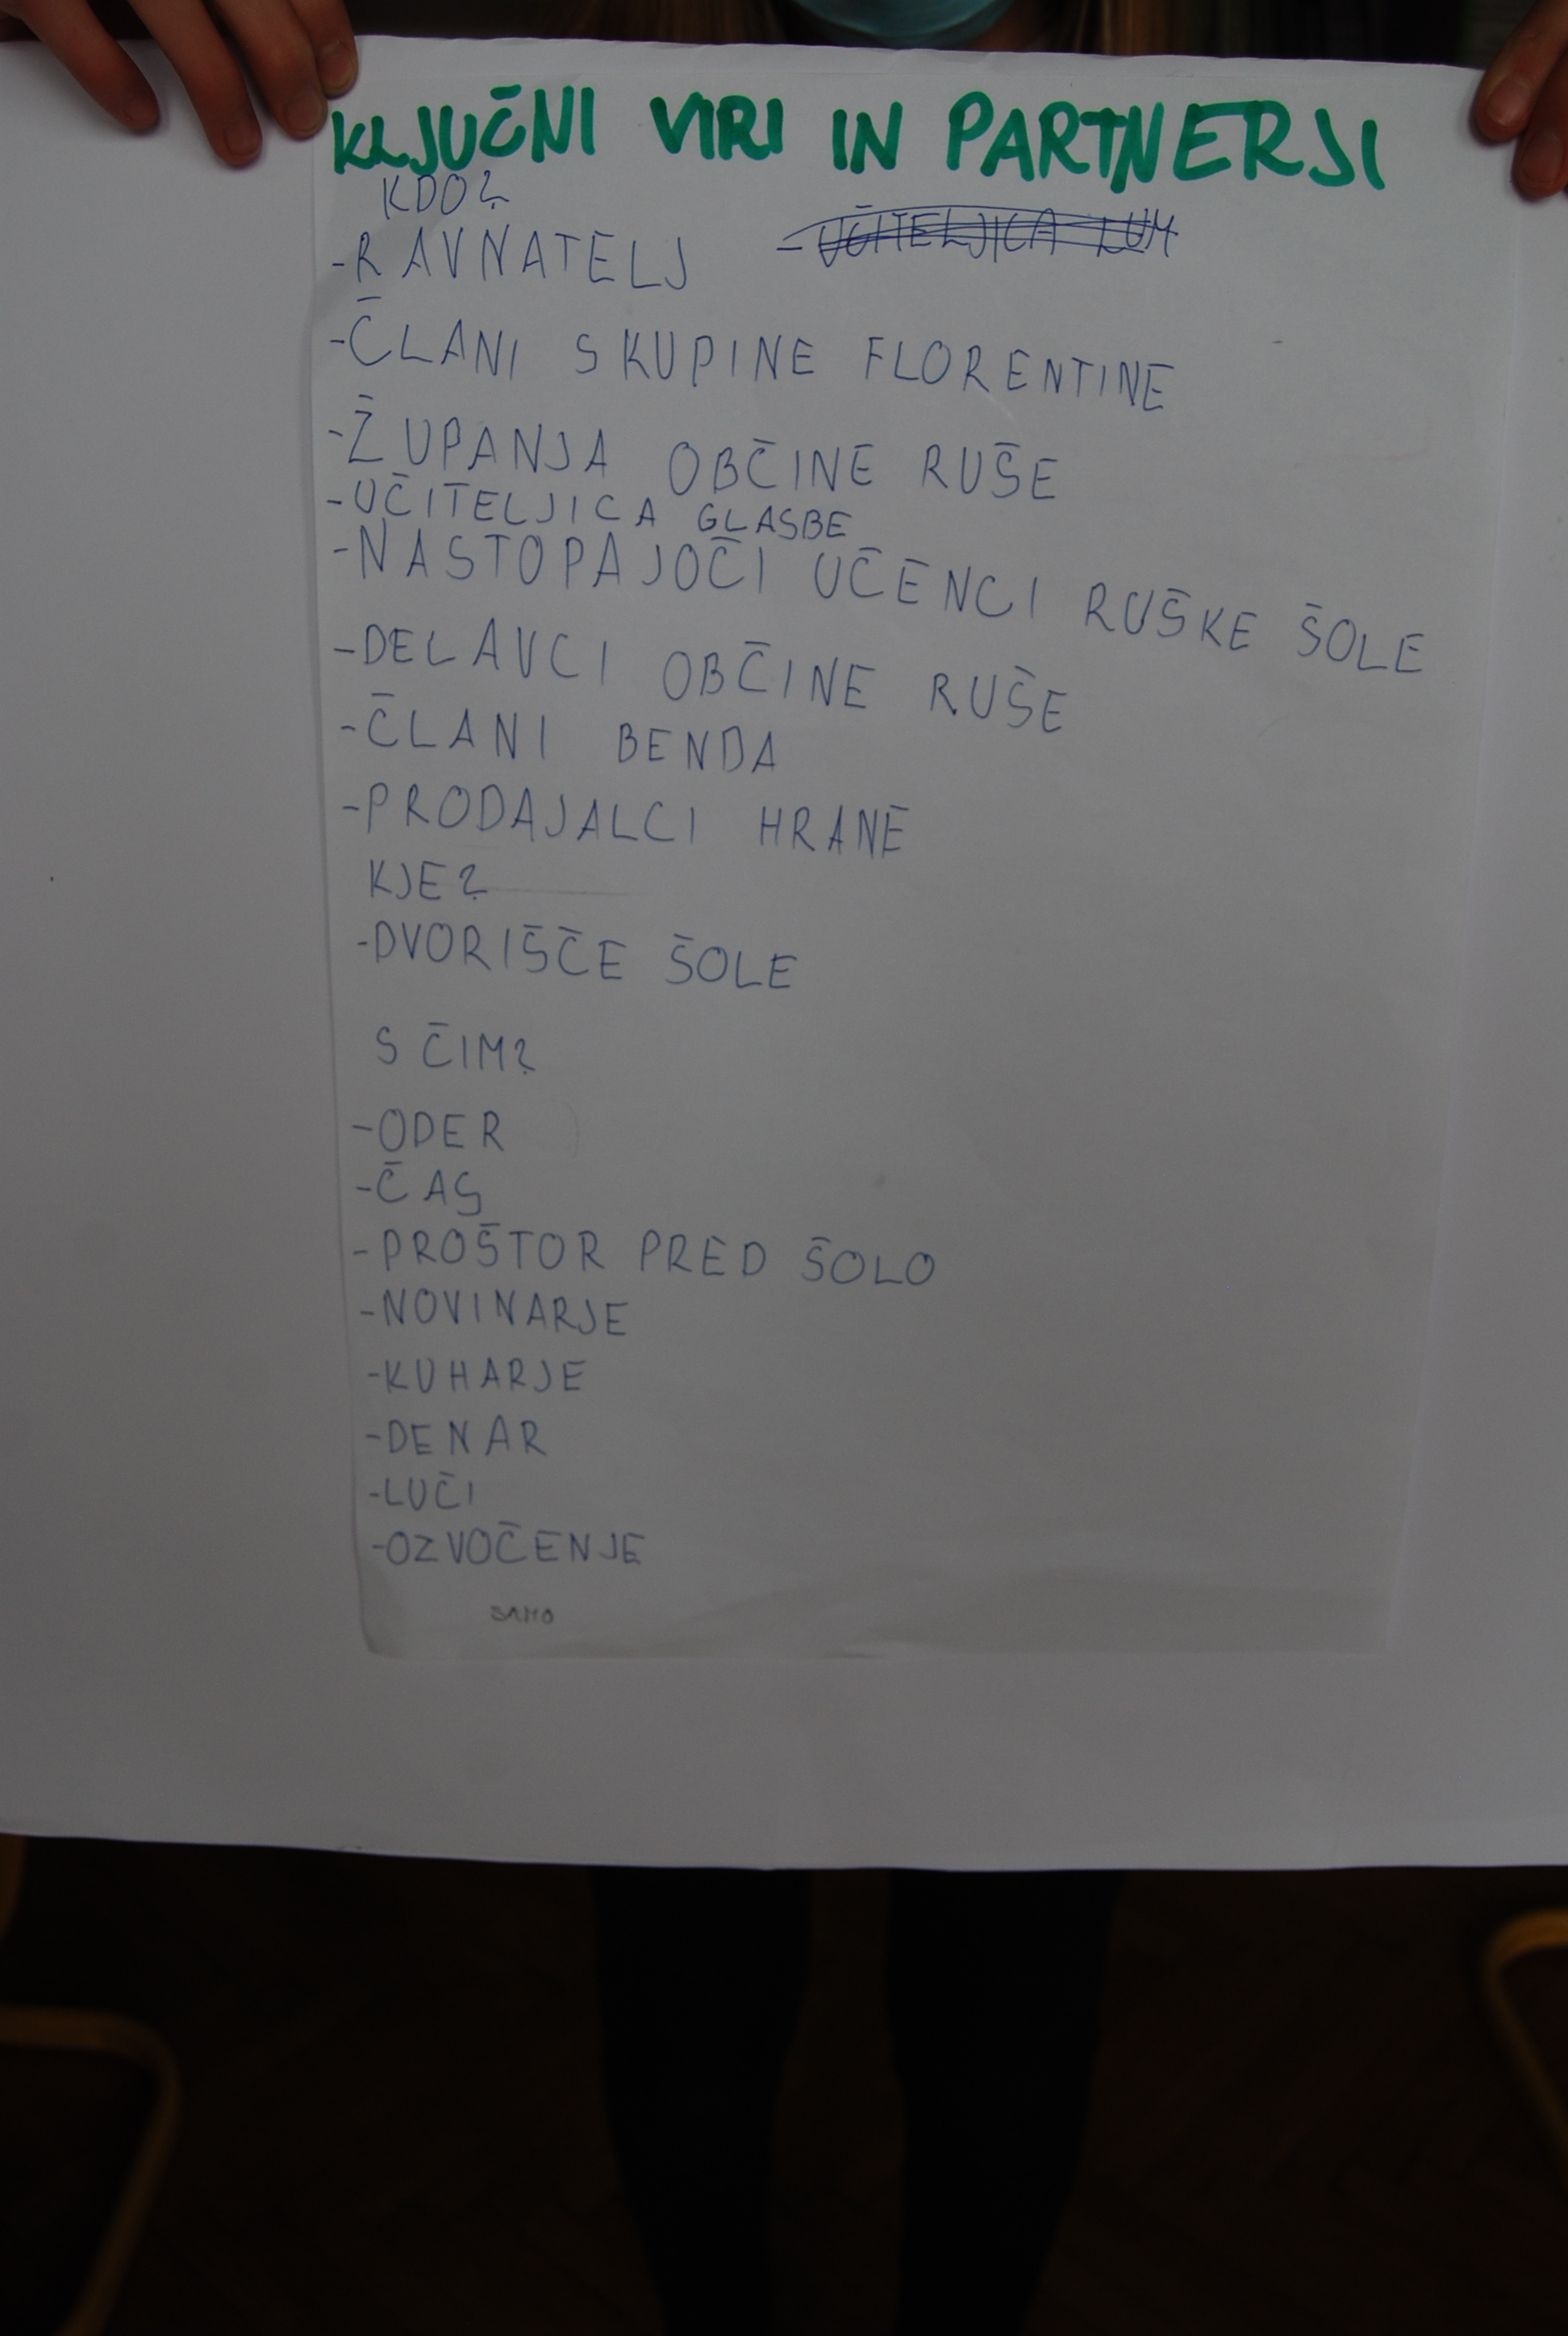 KLJUČNI VIRI IN PARTNERJI
KDO?
-RAVNATELJ
-ČLANI SKUPINE FLORENTINE
-ŽUPANJA OBČINE RUŠE
-UČITELJICA GLASBE
-NASTOPAJOČI UČENCI RUŠKE ŠOLE
-DELAVCI OBČINE RUŠE
-ČLANI BENDA
-PRODAJALCI HRANE
KJE?
-DVORIŠČE ŠOLE
S ČIM?
-ODER
-ČAS
-PROŠTOR PRED ŠOLO
-NOVINARJE
-KUHARJE
-DENAR
-LUČI
-OZVOČENJE
SAMO